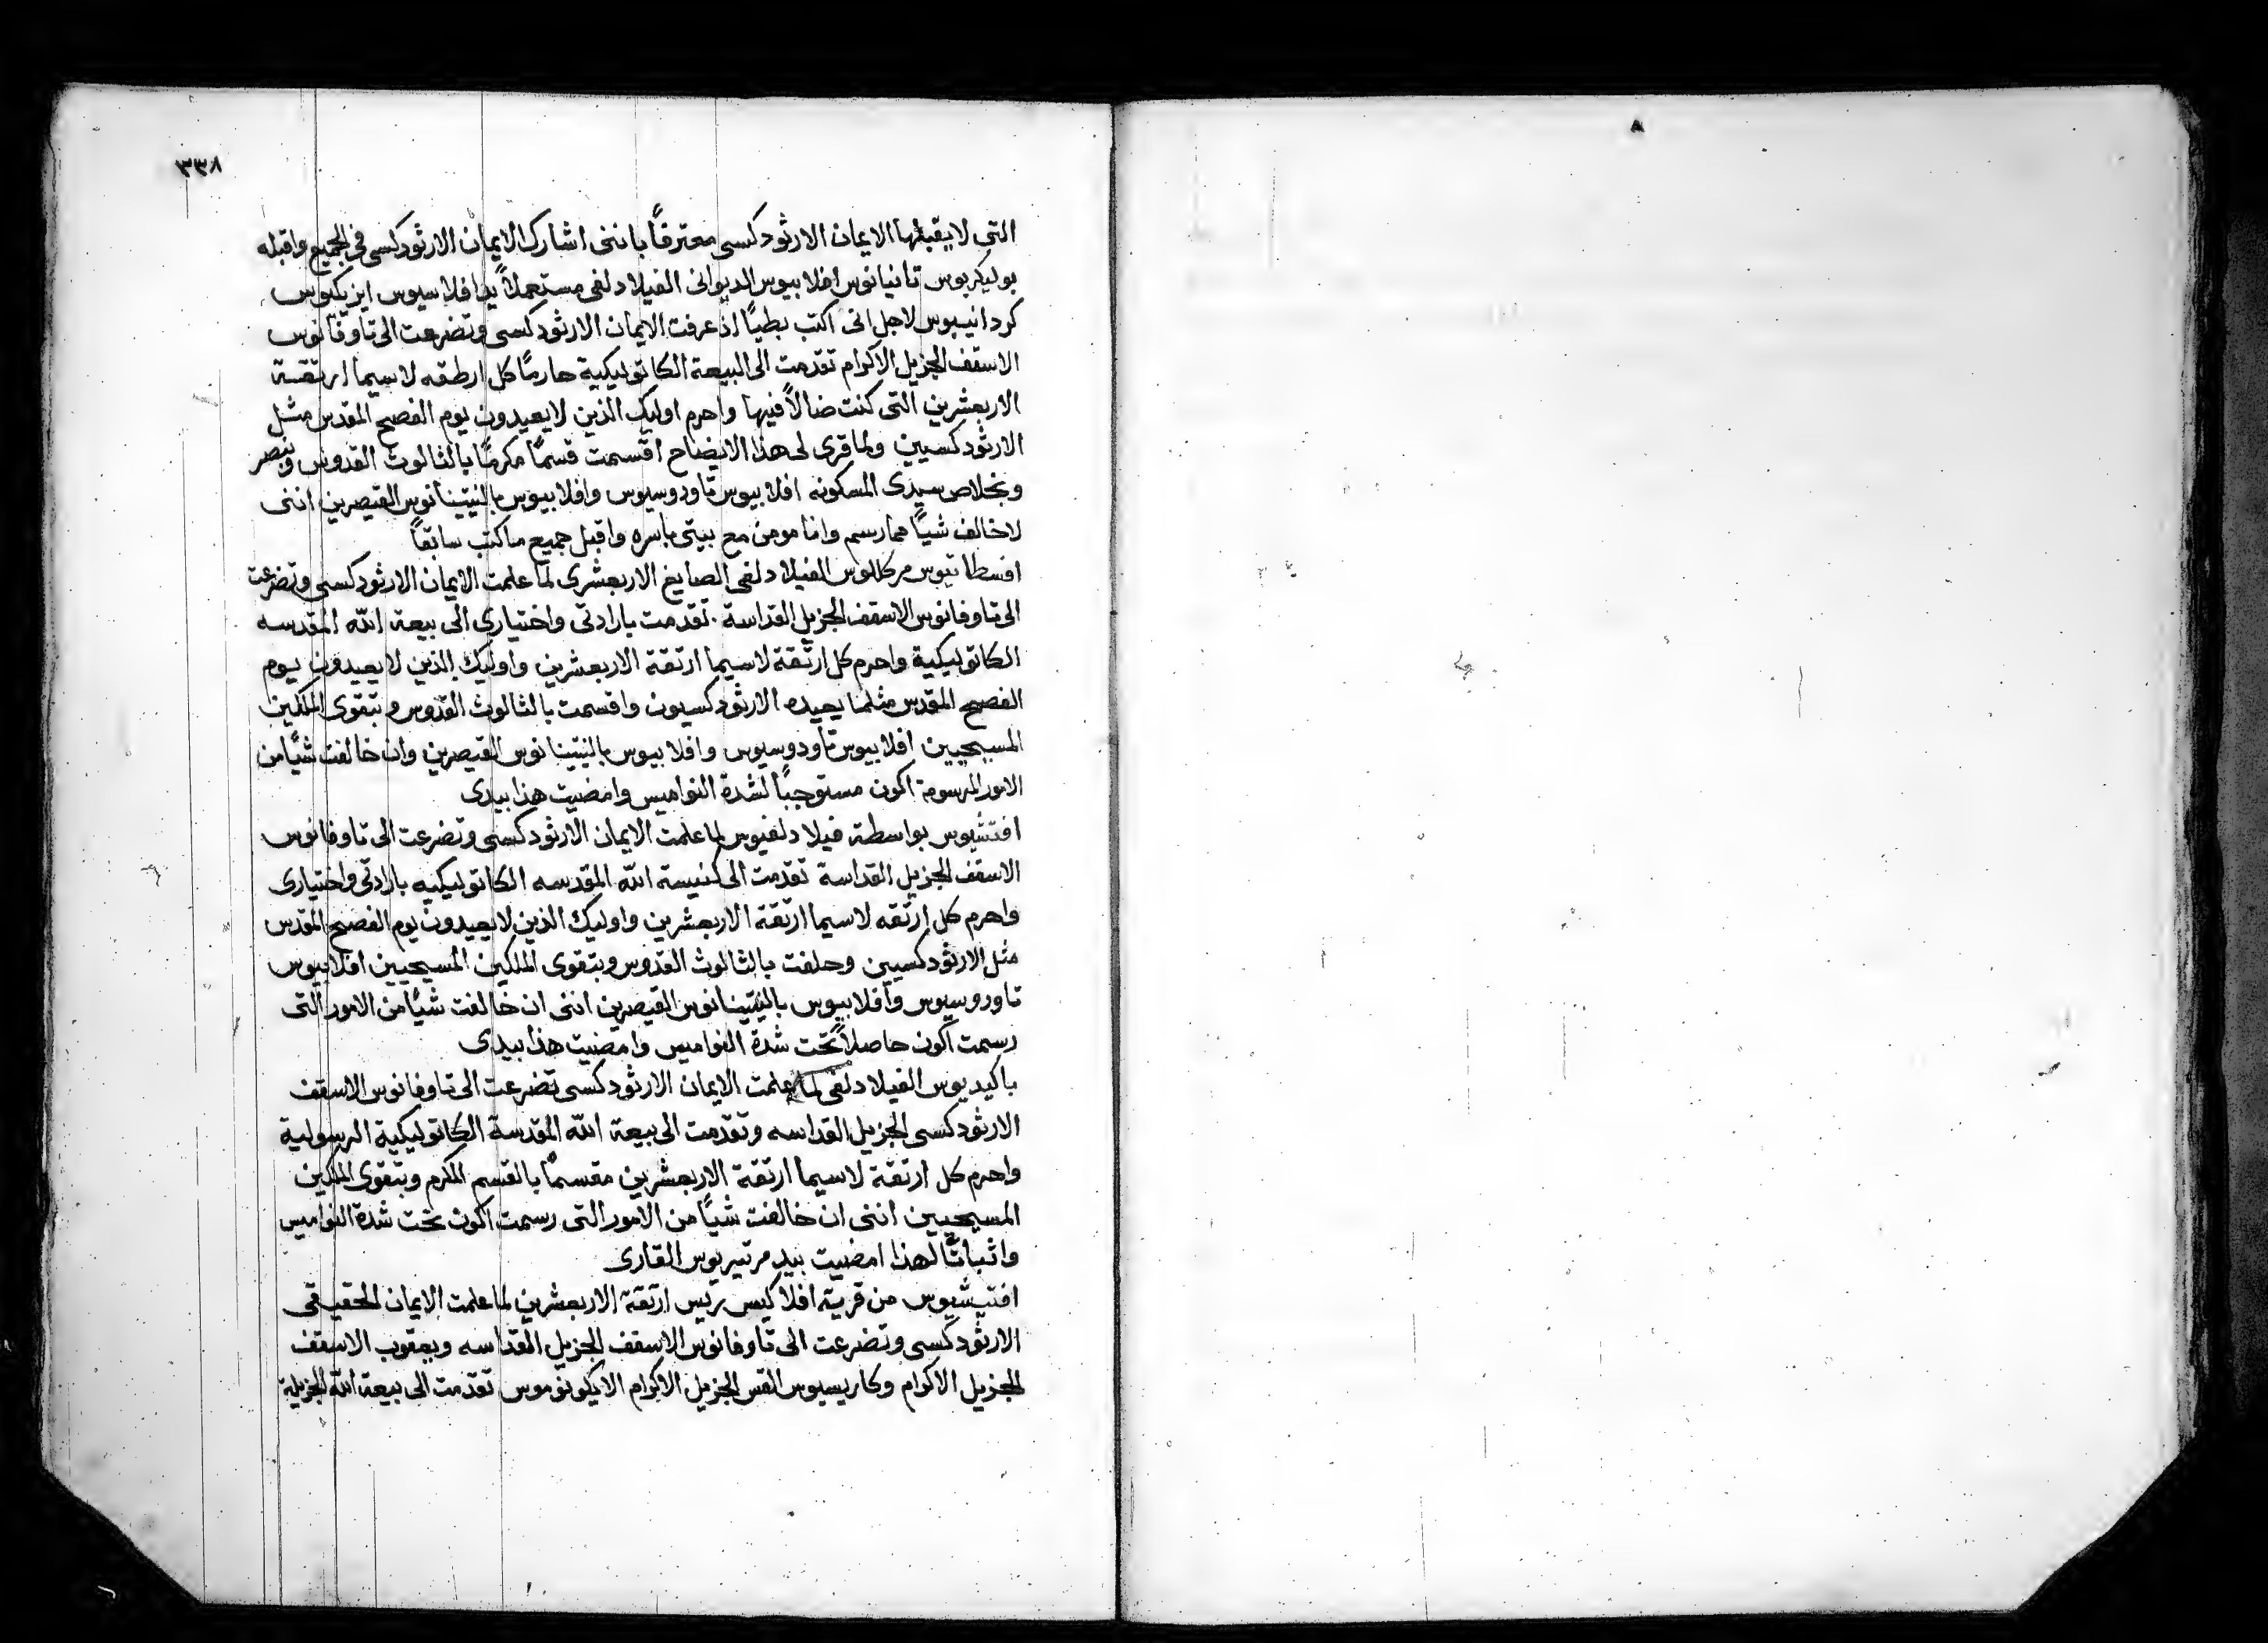 ٣٣٨
التى لا يقبلها الايمان الارثودكسى معترفاً باننى اشارك الايمان الارثودكسى فى الجميع واقبله
بوليكربوس تانيانوس افلابيوس الديوانى الفيلادلفى مستعملاً يد افلاسيوس ايزيكيوس
كردانيبوس لاجل انى اكتب بطياً اذ عرفت الايمان الارثودكسى وتضرعت الى تاوفانوس
الاسقف الجزيل الاكرام تقدمت الى البيعة الكاتوليكية حارماً كل ارطقه لا سيما ارتقسة
الاربعشرين التى كنت ضالاً فيها واحرم اوليك الذين لا يعيدون يوم الفصح المقدس مثل
الارثودكسيين ولما قرى لى هذا الايضاح اقسمت قسماً مكرماً بالثالوث القدوس وبنصر
وبخلاص سيدى المسكونه افلابيوس تاودوسيوس وافلابيوس بالنيتينانوس القيصرين اننى
لا خالف شياً مما رسم وانا مومن مع بيتى باسره واقبل جميع ما كتب سابقاً
افسطاتيوس مركللوس الفيلادلفى الصايغ الاربعشرى لما علمت الايمان الارثودكسى وتضرعت
الى تاوفانوس الاسقف الجزيل القداسة تقدمت بارادتى واختيارى الى بيعة الله المقدسه
الكاتوليكية واحرم كل ارتقة لاسيما ارتقة الاربعشرين واوليك الذين لا يعيدون يوم
الفصح المقدس مثلما يعيده الارثودكسيون واقسمت بالثالوث القدوس وبتقوى الملكين
المسيحيين افلابيوس تاودوسيوس وافلابيوس بالنيتينانوس القيصرين وان خالفت شياً من
الامور المرسومة اكون مستوجباً لشدة النواميس وامضيت هذا بيدى
افتشيوس بواسطة فيلادلفيوس لما علمت الايمان الارثودكسى وتضرعت الى تاوفانوس
الاسقف الجزيل القداسة تقدمت الى كنيسة الله المقدسه الكاتوليكيه بارادتى واختيارى
واحرم كل ارتقه لاسيما ارتقة الاربعشرين واوليك الذين لا يعيدون يوم الفصح المقدس
مثل الارثودكسيين وحلفت بالثالوث القدوس وبتقوى الملكين المسيحيين افلابيوس
تاودوسيوس وافلابيوس بالنيتينانوس القيصرين اننى ان خالفت شياً من الامور التى
رسمت اكون حاصلاً تحت شدة النواميس وامضيت هذا بيدى
باكيديوس الفيلادلفى لما علمت الايمان الارثودكسى تضرعت الى تاوفانوس الاسقف
الارثودكسى الجزيل القداسه وتقدمت الى بيعة الله المقدسة الكاتوليكية الرسولية
واحرم كل ارتقة لاسيما ارتقة الاربعشرين مقسماً بالقسم المكرم وبتقوى الملكين
المسيحيين اننى ان خالفت شياً من الامور التى رسمت اكون تحت شدة النواميس
واثباتاً لهذا امضيت بيد مرتيريوس القارى
افتيشيوس من قرية افلاكيس ريس ارتقة الاربعشرين لما علمت الايمان الحقيقى
الارثودكسى وتضرعت الى تاوفانوس الاسقف الجزيل القداسه ويعقوب الاسقف
الجزيل الاكرام وكاريسيوس القس الجزيل الاكرام الايكونوموس تقدمت الى بيعة الله الجزيلة